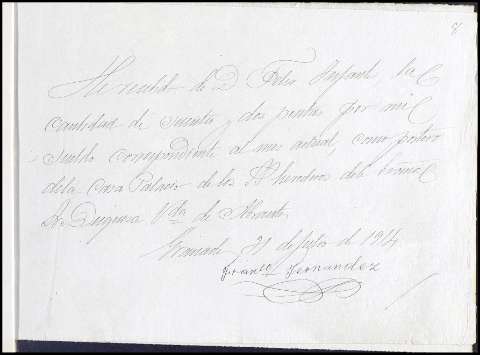 8
He recibido de D. Felix Infante, la
cantidad de sesenta y dos pesetas por mi
sueldo correspondiente al mes actual, como portero
de la Casa Palacio de los herederos del
Duquesa Vda de
Granada 31 de Julio de 1914
Franco Fernandez